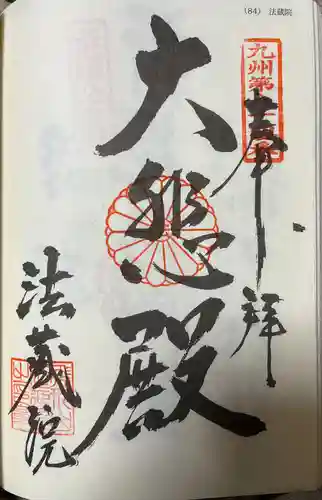 (84) 法蔵院
九州第
奉拝
大悲殿
法蔵院